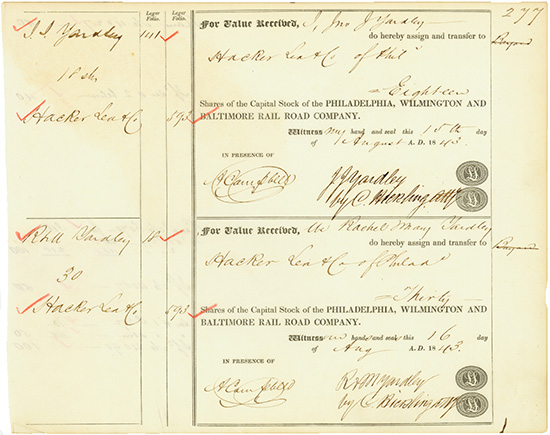 277
Leger Folio.
Leger Folio.
J. J. Yardley 1111
18 sh
Hacker Lea & Co 593
For Value Received, I, Jno J Yardley
do hereby assign and transfer to
Hacker Lea & Co of Phil
Eighteen
Shares of the Capital Stock of the PHILADELPHIA, WILMINGTON AND
BALTIMORE RAIL ROAD COMPANY.
Witness my hand and seal this 15th day
of August A. D. 1843.
IN PRESENCE OF
A Campbell
J J Yardley
by C Bickling atty
R & M Yardley 18
30
Hacker Lea & Co 593
For Value Received, We Rachel Mary Yardley
do hereby assign and transfer to
Hacker Lea & Co of Philada
Thirty
Shares of the Capital Stock of the PHILADELPHIA, WILMINGTON AND
BALTIMORE RAIL ROAD COMPANY.
Witness our hands and seals this 16 day
of Aug A. D. 1843.
IN PRESENCE OF
A Campbell
R & M Yardley
by C Bickling atty